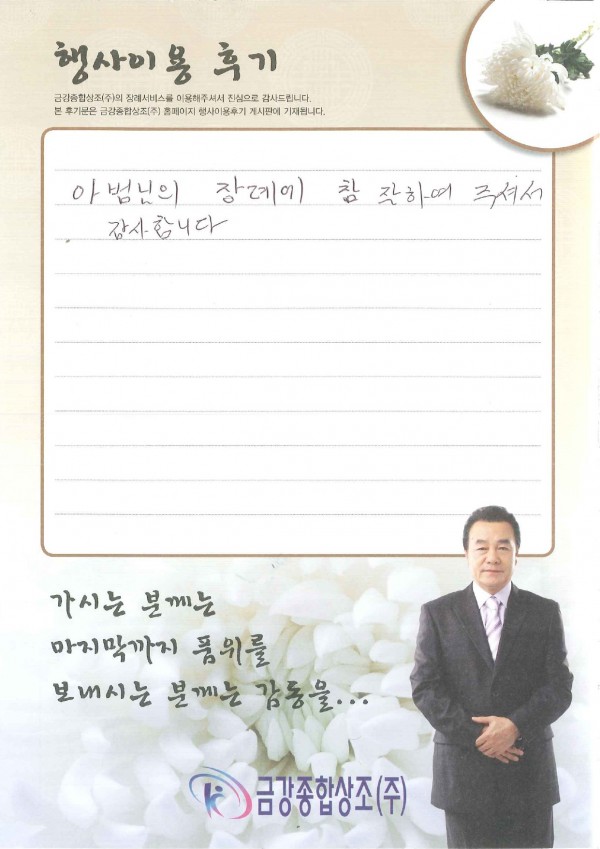 행사이용 후기
금강종합상조(주)의 장례서비스를 이용해주셔서 진심으로 감사드립니다.
본 후기문은 금강종합상조(주) 홈페이지 행사이용후기 게시판에 기재됩니다.
아범님의 장례에 참 잔하여 주셔서
감사합니다
가시는 분께는
마지막까지 품위를
보내시는 분께는 감동을...
금강종합상조(주)